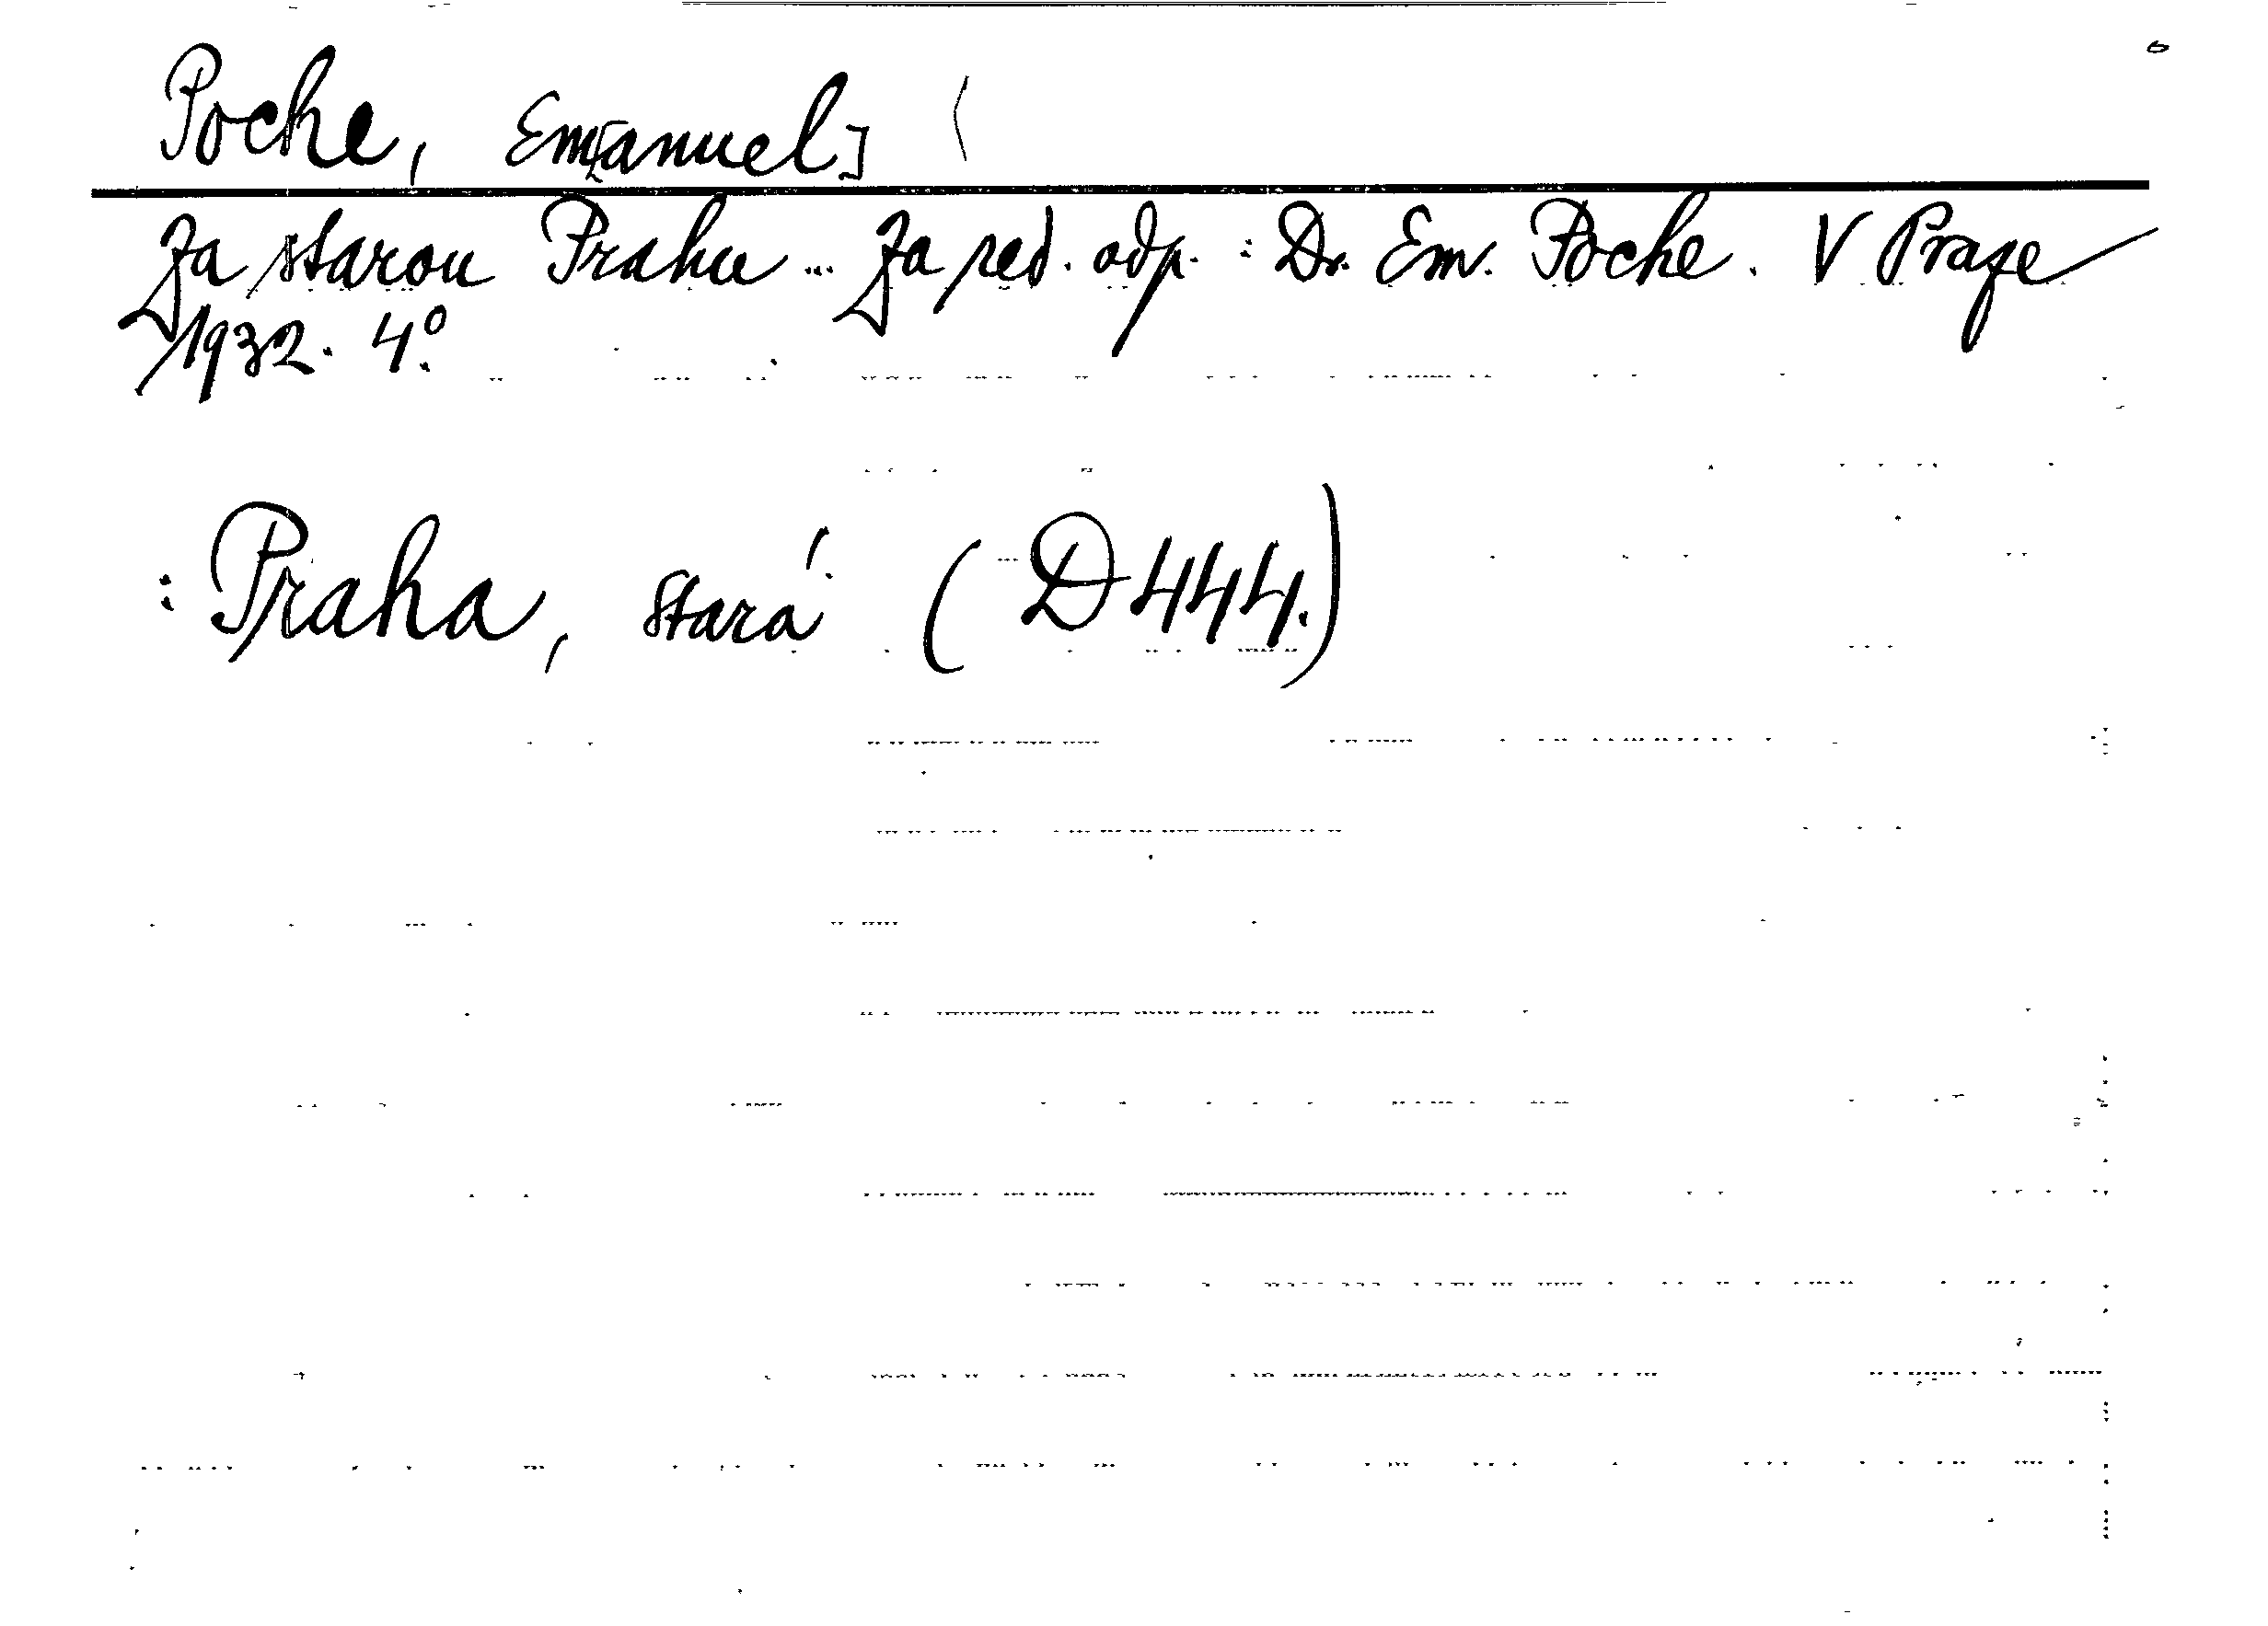 Poche, Em[anuel]
Za starou Prahu ... Za red. odp. : Dr. Em. Poche. V Praze
1932. 4°.
: Praha, stará (D 444.)